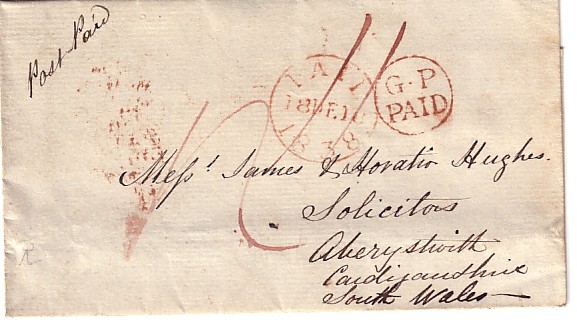 Post Paid
PAID
18 DE 18
1838
G·P
PAID
Messrs. James & Horatio Hughes.
Solicitors
Aberystwith
Cardiganshire
South Wales